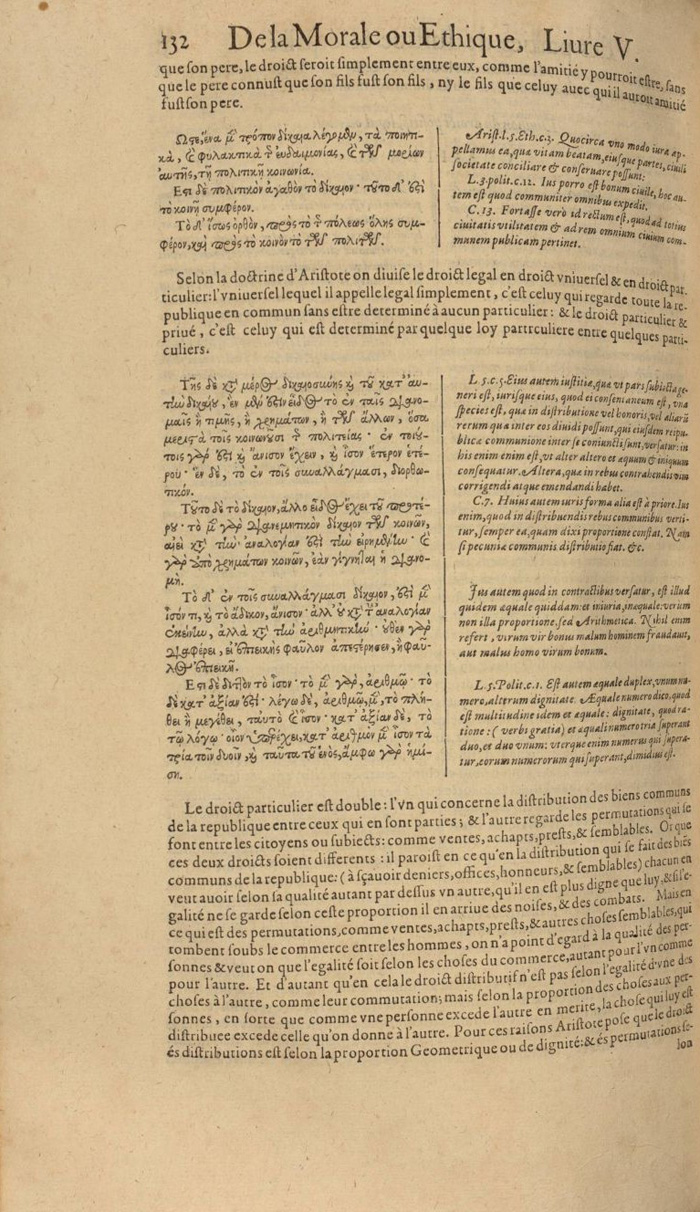 132 De la Morale ou Ethique, Liure V.
que son pere, le droict seroit simplement entre eux, comme l'amitié y pourroit estre, sans
que le pere connust que son fils fust son fils, ny le fils que celuy auec qui il auroit amitié
fust son pere.
Ὥςε, ἕνα μ̂ τρόπον δίκαια λέγομῳ, τὰ ποιητι-
κὰ, ϗ φυλακτικὰ τ̂ ευδαιμονίας, ϗ τῶν μορίων
αυτῆς, τῇ πολιτικῇ κοινωνία.
Εςι δὲ πολιτικὸν ἀγαθὸν τὸ δίκαιον· τοῦτο δ' ἐςὶ
τὸ κοινῇ συμφέρον.
Τὸ δ' ἴσως ὀρθὸν, πρὸς τὸ τ̂ πόλεως ὅλης συμ-
φέρον, καὶ πρὸς τὸ κοινὸν τὸ τῶν πολιτῶν.
Arist. l. 5. Eth. c. 3. Quocirca vno modo iura ap-
pellamus ea, quæ vitam beatam, eiusque partes, ciuili
societate conciliare & conseruare possunt.
L. 3. polit. c. 12. Ius porro est bonum ciuile, hoc au-
tem est quod communiter omnibus expedit.
C. 13. Fortasse verò id rectum est, quod ad totius
ciuitatis vtilitatem & ad rem omnium ciuium com-
munem publicam pertinet.
Selon la doctrine d'Aristote on diuise le droict legal en droict vniuersel & en droict par-
ticulier: l'vniuersel lequel il appelle legal simplement, c'est celuy qui regarde toute la re-
publique en commun sans estre determiné à aucun particulier: & le droict particulier &
priué, c'est celuy qui est determiné par quelque loy partrculiere entre quelques parti-
culiers.
Τῆς δὲ κτ̀ μέρος δικαιοσύνης ϗ τοῦ κατ' αυ-
τὴν δικαίου, ἓν μῂν ἐςὶν εἶδος τὸ ἐν ταῖς διανο-
μαῖς ἢ τιμῆς, ἢ χρημάτων, ἢ τῶν ἄλλων, ὅσα
μεριςὰ τοῖς κοινωνοῦσι τ̂ πολιτείας· ἐν τού-
τοις γὰρ ἐςὶ ϗ ἄνισον ἔχειν, ϗ ἴσον ἕτερον ἑτέ-
ρου· ἓν δὲ, τὸ ἐν τοῖς συναλλάγμασι, διορθω-
τικόν.
Τοῦτο δὲ τὸ δίκαιον, ἄλλο εἶδος ἔχει τοῦ προτέ-
ρου· τὸ μ̂ γὰρ διανεμητικὸν δίκαιον τῶν κοινῶν,
αἰεὶ κτ̀ τὴν ἀναλογίαν ἐςὶ τὴν εἰρημένην· ϗ
γὰρ ἀπὸ χρημάτων κοινῶν, ἐὰν γίγνηται ἡ διανο-
μή.
Τὸ δ' ἐν τοῖς συναλλάγμασι δίκαιον, ἐςὶ μ̂
ἴσόν τι, ϗ τὸ ἄδικον, ἄνισον· ἀλλ' οὐ κτ̀ τ̂ ἀναλογίαν
ἐκείνην, ἀλλὰ κτ̀ τὴν ἀριθμητικήν· οὐθὲν γὰρ
διαφέρει, εἰ ἐπιεικὴς φαῦλον ἀπεςέρησεν, ἢ φαῦ-
λος ἐπιεικῆ.
Εςι δὲ διττὸν τὸ ἴσον· τὸ μ̂ γὰρ, ἀριθμῷ· τὸ
δὲ κατ' ἀξίαν ἐςί· λέγω δὲ, ἀριθμῷ, μ̂, τὸ πλή-
θει ἢ μεγέθει, ταυτὸ ϗ ἴσον· κατ' ἀξίαν δὲ, τὸ
τῷ λόγῳ· οἷον ὑπερέχει, κατ' ἀριθμὸν μ̂ ἴσον τὰ
τρία τοῖν δυοῖν, ϗ ταῦτα τοῦ ἑνὸς, ἄμφω γὰρ ἡμί-
ση.
L 5. c. 5. Eius autem iustitiæ, quæ vt pars subiecta ge-
neri est, iurisque eius, quod ei consentaneum est, vna
species est, quæ in distributione vel honoris, vel aliarũ
rerum quæ inter eos diuidi possunt, qui eiusdem reipu-
blicæ communione inter se coniuncti sunt, versatur: in
his enim enim est, vt alter altero et æquum & iniquum
consequatur. Altera, quæ in rebus contrahendis vim
corrigendi atque emendandi habet.
C. 7. Huius autem iuris forma alia est à priore. Ius
enim, quod in distribuendis rebus communibus verti-
tur, semper ea, quam dixi proportione constat. Nam
si pecuniæ communis distributio fiat. &c.
Jus autem quod in contractibus versatur, est illud
quidem æquale quiddam: et iniuria, inæquale: verum
non illa proportione. sed Arithmetica. Nihil enim
refert, virum vir bonus malum hominem fraudauit,
aut malus homo virum bonum.
L. 5. Polit. c. 1. Est autem æquale duplex, vnum nu-
mero, alterum dignitate. Æquale numero dico, quod
est multitudine idem et æquale: dignitate, quod ra-
tione: ( verbi gratia) et æquali numero tria superant
duo, et duo vnum: vterque enim numerus qui supera-
tur, eorum numerorum qui superant, dimidius est.
Le droict particulier est double: l'vn qui concerne la distribution des biens communs
de la republique entre ceux qui en sont parties; & l'autre regarde les permutations qui se
font entre les citoyens ou subiects: comme ventes, achapts, prests, & semblables. Or que
ces deux droicts soient differents: il paroist en ce qu'en la distribution qui se fait des biẽs
communs de la republique: (à sçauoir deniers, offices, honneurs, & semblables) chacun en
veut auoir selon sa qualité autant par dessus vn autre, qu'il en est plus digne que luy, & si l'e-
galité ne se garde selon ceste proportion il en arriue des noises, & des combats. Mais en
ce qui est des permutations, comme ventes, achapts, prests, & autres choses semblables, qui
tombent soubs le commerce entre les hommes, on n'a point d'egard à la qualité des per-
sonnes & veut on que l'egalité soit selon les choses du commerce, autant pour l'vn comme
pour l'autre. Et d'autant qu'en cela le droict distributif n'est pas selon l'egalité d'vne des
choses à l'autre, comme leur commutation; mais selon la proportion des choses aux per-
sonnes, en sorte que comme vne personne excede l'autre en merite, la chose qui luy est
distribuee excede celle qu'on donne à l'autre. Pour ces raisons Aristote pose que le droict
és distributions est selon la proportion Geometrique ou de dignité: & és permutations se-
lon